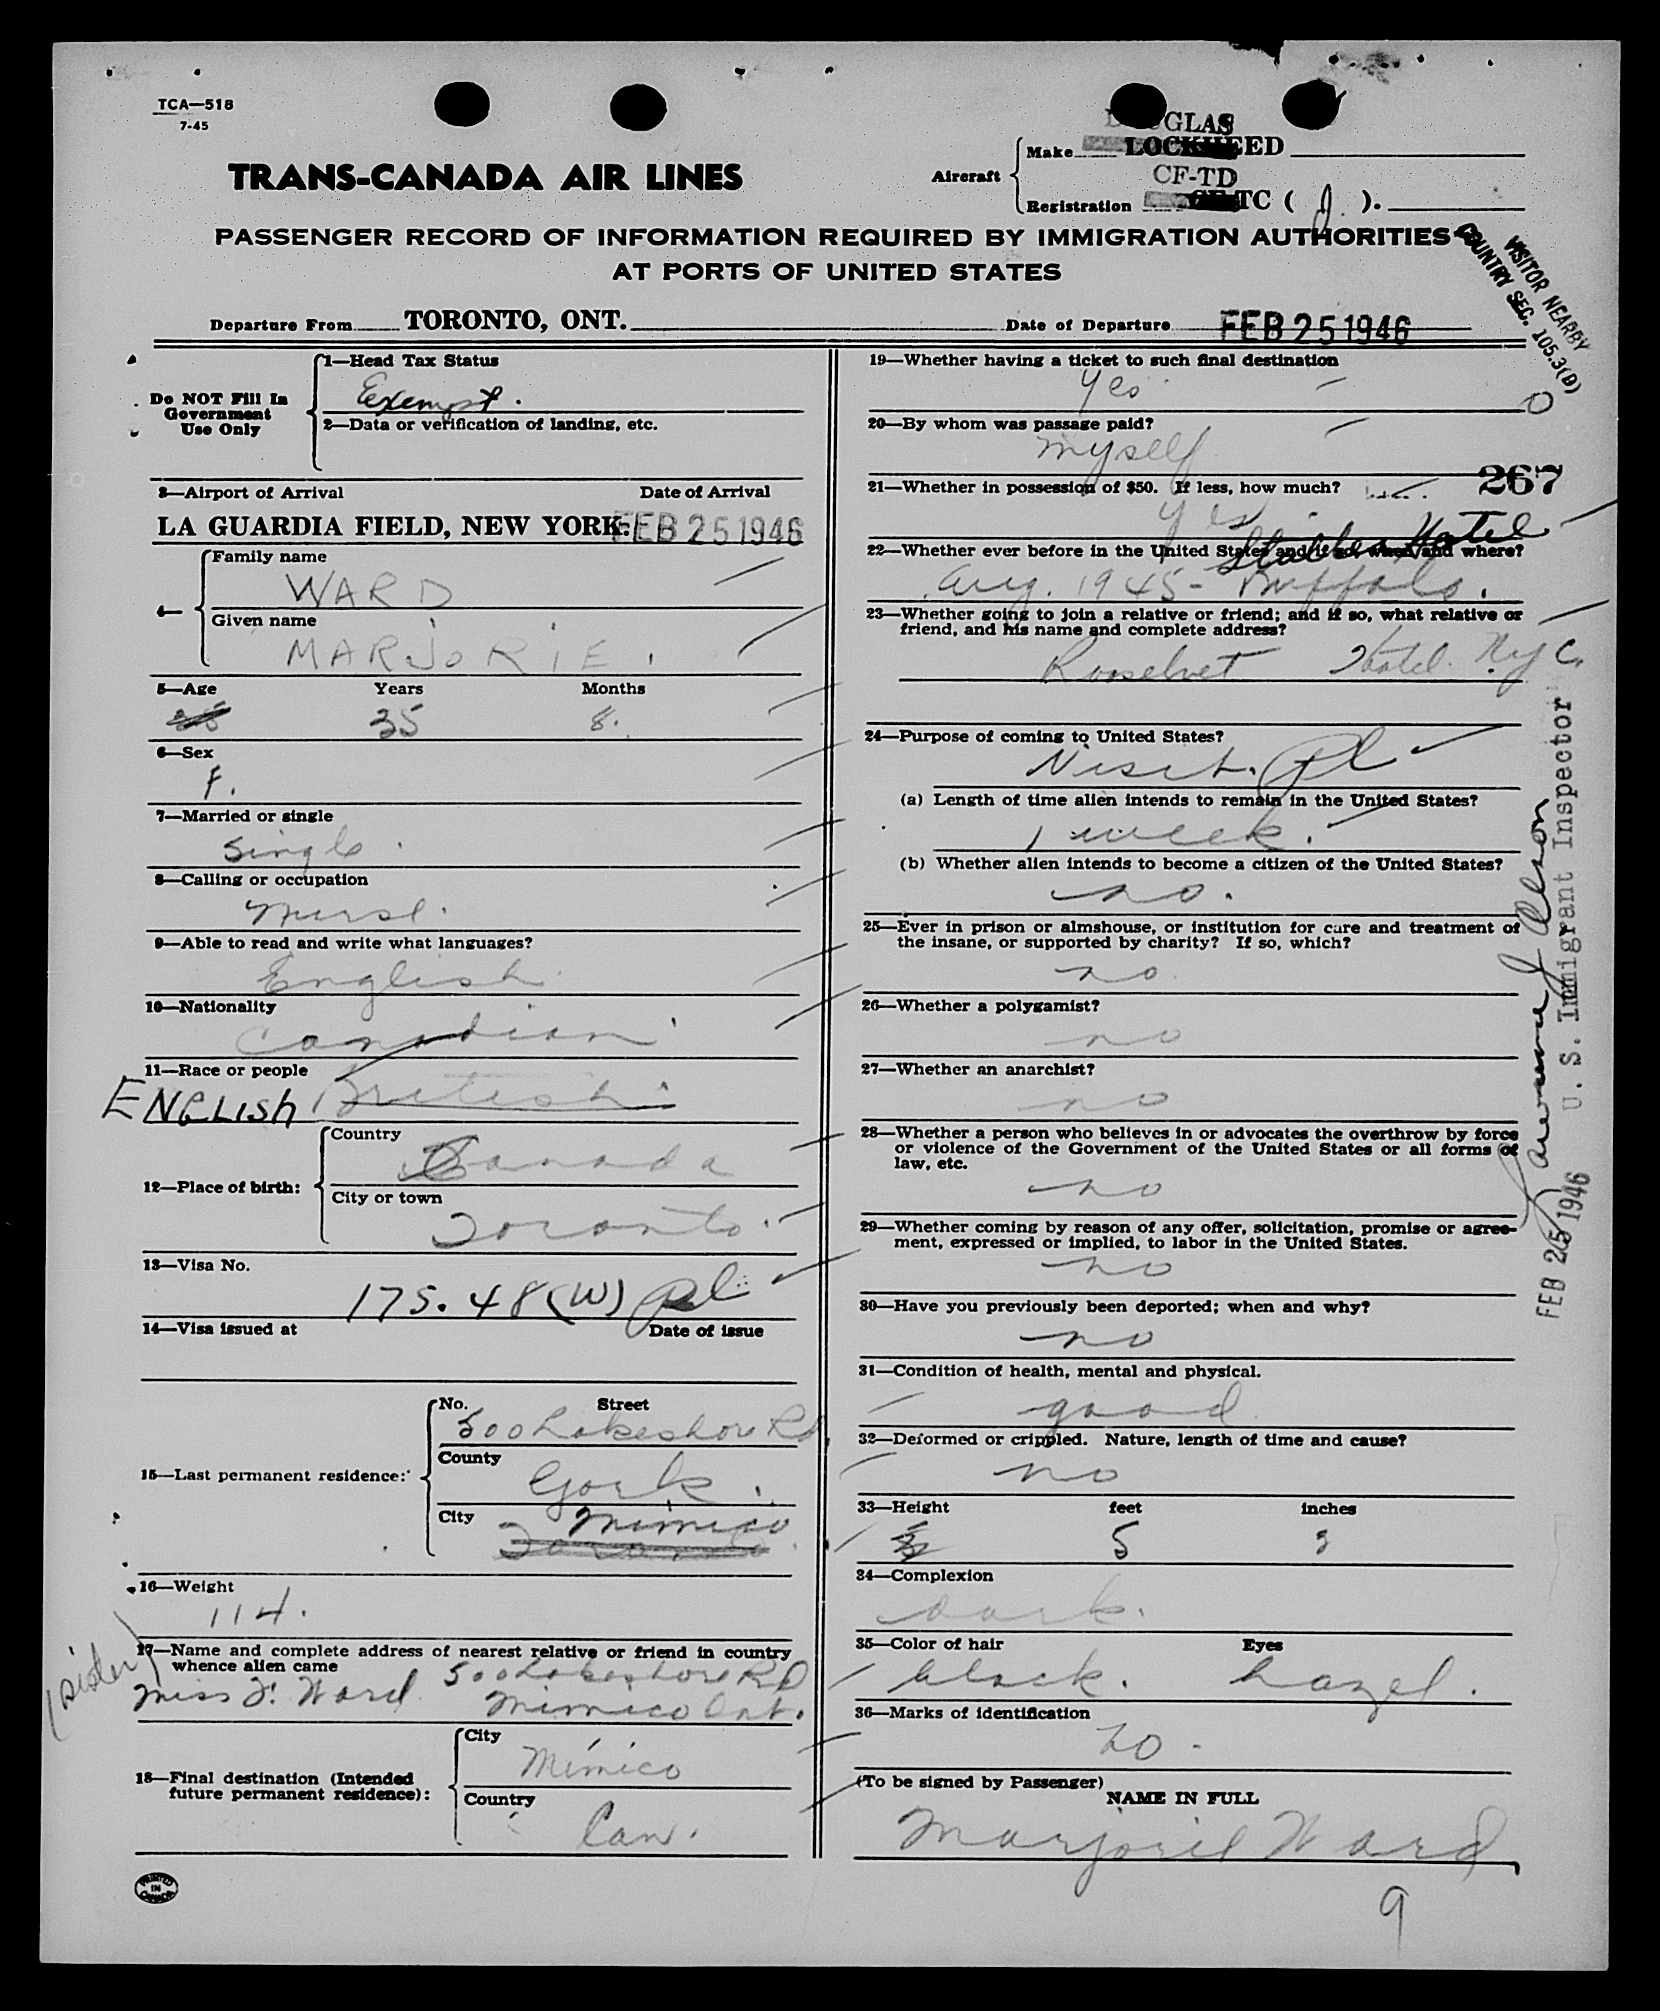 TCA—518
7-45
TRANS-CANADA AIR LINES
Aircraft
Make
GLAS
LOCKHEED
CF-TD
Registration TC ( J ).
PASSENGER RECORD OF INFORMATION REQUIRED BY IMMIGRATION AUTHORITIES
AT PORTS OF UNITED STATES
VISITOR NEARBY
COUNTRY SEC. 105.3(D)
Departure From TORONTO, ONT.
Date of Departure FEB 25 1946
Do NOT Fill In
Government
Use Only
1—Head Tax Status
Exempt.
2—Data or verification of landing, etc.
3—Airport of Arrival Date of Arrival
LA GUARDIA FIELD, NEW YORK: FEB 25 1946
4—
Family name
WARD
Given name
MARJORIE.
5—Age Years Months
35 8.
6—Sex
F.
7—Married or single
Single.
8—Calling or occupation
Nurse.
9—Able to read and write what languages?
English
10—Nationality
Canadian
11—Race or people
ENGLISH British
12—Place of birth:
Country
Canada
City or town
Toronto.
13—Visa No.
175.48(W)
14—Visa issued at Date of issue
15—Last permanent residence:
No. Street
500 Lakeshore Rd.
County
York.
City
Mimico
Toronto
16—Weight
114.
17—Name and complete address of nearest relative or friend in country
whence alien came
(sister)
500 Lakeshore RD
Miss F. Ward Mimico Ont.
18—Final destination (Intended
future permanent residence):
City
Mimico
Country
Can.
PRINTED
IN
CANADA
19—Whether having a ticket to such final destination
Yes
20—By whom was passage paid?
myself
21—Whether in possession of $50. If less, how much?
267
yes
Statler Hotel
22—Whether ever before in the United States and if so, when and where?
Aug. 1945 - Buffalo.
23—Whether going to join a relative or friend; and if so, what relative or
friend, and his name and complete address?
Rooselvet Hotel. N.Y.C.
24—Purpose of coming to United States?
Visit.
(a) Length of time alien intends to remain in the United States?
1 week.
(b) Whether alien intends to become a citizen of the United States?
no.
25—Ever in prison or almshouse, or institution for care and treatment of
the insane, or supported by charity? If so, which?
no
26—Whether a polygamist?
no
27—Whether an anarchist?
no
28—Whether a person who believes in or advocates the overthrow by force
or violence of the Government of the United States or all forms of
law, etc.
no
29—Whether coming by reason of any offer, solicitation, promise or agree-
ment, expressed or implied, to labor in the United States.
no
30—Have you previously been deported; when and why?
no
31—Condition of health, mental and physical.
good
32—Deformed or crippled. Nature, length of time and cause?
no
33—Height feet inches
5 3
34—Complexion
dark.
35—Color of hair Eyes
black. hazel.
36—Marks of identification
no.
(To be signed by Passenger)
NAME IN FULL
Marjorie Ward
9
U. S. Immigrant Inspector
FEB 25 1946